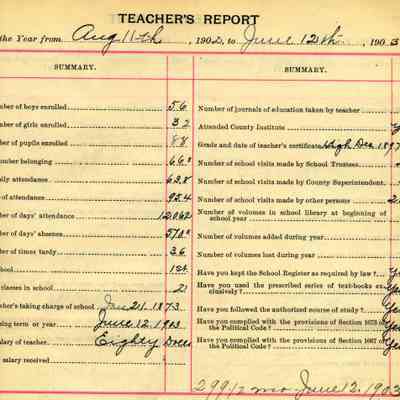 TEACHER'S REPORT
the Year from Aug 11th, 1902, to June 12th, 1903
SUMMARY.
ber of boys enrolled 56
ber of girls enrolled 32
ber of pupils enrolled 88
mber belonging
ily attendance
of attendance
er of days' attendance
er of days' absence
r of times tardy 36
hool
classes in school 21
her's taking charge of school Jan 21 1873
sing term or year June 12, 1903
alary of teacher Eighty
salary received
SUMMARY.
Number of journals of education taken by teacher
Attended County Institute
Grade and date of teacher's certificate High
Number of school visits made by School Trustees
Number of school visits made by County Superintendent
Number of school visits made by other persons
Number of volumes in school library at beginning of
school year
Number of volumes added during year
Number of volumes lost during year
Have you kept the School Register as required by law?
Have you used the prescribed series of text-books ex-
clusively?
Have you followed the authorized course of study?
Have you complied with the provisions of Section
the Political Code?
Have you complied with the provisions of Section
the Political Code?
June 12, 1903